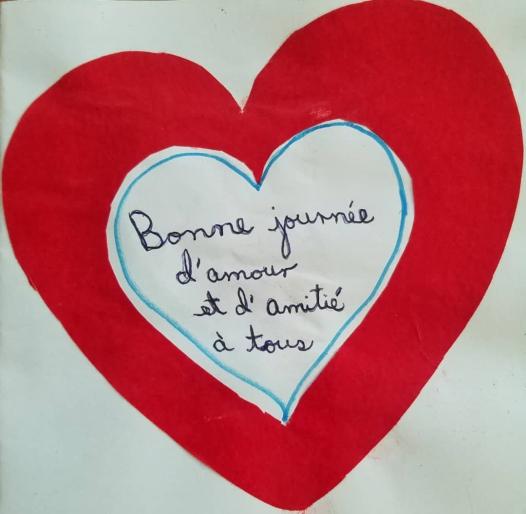 Bonne journée
d'amour
et d'amitié
à tous